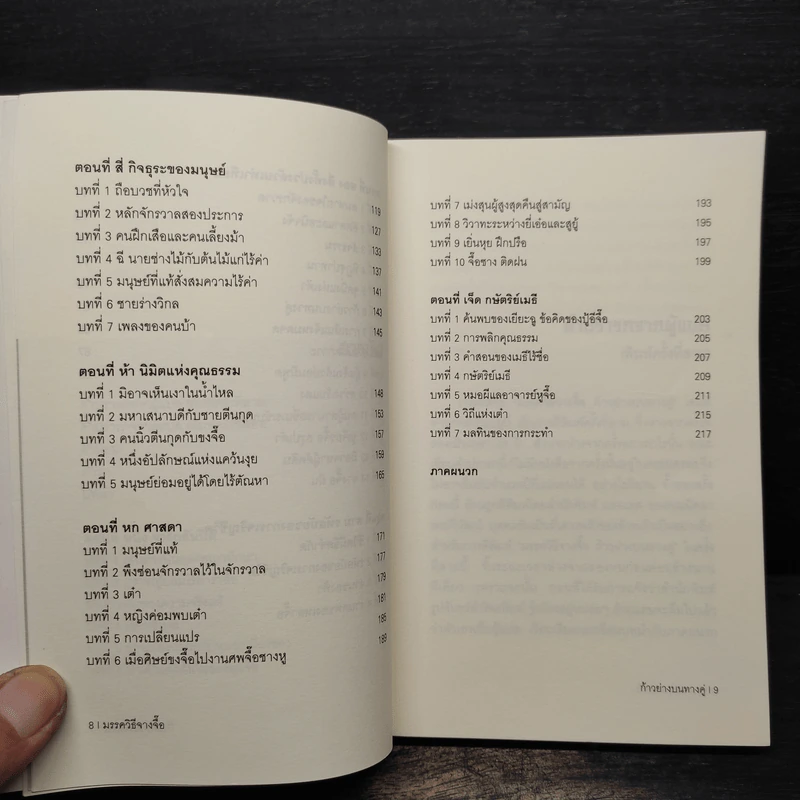 ตอนที่ สี่ กิจธุระของมนุษย์
บทที่ 1 ถือบวชที่หัวใจ 119
บทที่ 2 หลักจักรวาลสองประการ 127
บทที่ 3 คนฝึกเสือและคนเลี้ยงม้า 133
บทที่ 4 ฉี นายช่างไม้กับต้นไม้แก่ไร้ค่า 137
บทที่ 5 มนุษย์ที่แท้สั่งสมความไร้ค่า 141
บทที่ 6 ชายร่างวิกล 143
บทที่ 7 เพลงของคนบ้า 145
ตอนที่ ห้า นิมิตแห่งคุณธรรม
บทที่ 1 มิอาจเห็นเงาในน้ำไหล 148
บทที่ 2 มหาเสนาบดีกับชายตีนกุด 153
บทที่ 3 คนนิ้วตีนกุดกับขงจื๊อ 157
บทที่ 4 หนึ่งอัปลักษณ์แห่งแคว้นงุย 159
บทที่ 5 มนุษย์ย่อมอยู่ได้โดยไร้ตัณหา 165
ตอนที่ หก ศาสดา
บทที่ 1 มนุษย์ที่แท้ 171
บทที่ 2 พึงซ่อนจักรวาลไว้ในจักรวาล 177
บทที่ 3 เต๋า 179
บทที่ 4 หญิงค่อมพบเต๋า 181
บทที่ 5 การเปลี่ยนแปร 185
บทที่ 6 เมื่อศิษย์ขงจื๊อไปงานศพจื๊อซางหู 189
8 | มรรควิธีจางจื๊อ
บทที่ 7 เม่งสุนผู้สูงสุดคืนสู่สามัญ 193
บทที่ 8 วิวาทะระหว่างยี่เอ๋อและสูยู้ 195
บทที่ 9 เยิ่นหุย ฝึกปรือ 197
บทที่ 10 จื๊อซาง ติดฝน 199
ตอนที่ เจ็ด กษัตริย์เมธี
บทที่ 1 ค้นพบของเยียะฉู ข้อคิดของปู้อีจื๊อ 203
บทที่ 2 การพลิกคุณธรรม 205
บทที่ 3 คำสอนของเมธีไร้ชื่อ 207
บทที่ 4 กษัตริย์เมธี 209
บทที่ 5 หมอผีแลอาจารย์หูจื๊อ 211
บทที่ 6 วิถีแห่งเต๋า 215
บทที่ 7 มลทินของการกระทำ 217
ภาคผนวก
ก้าวย่างบนทางคู่ | 9